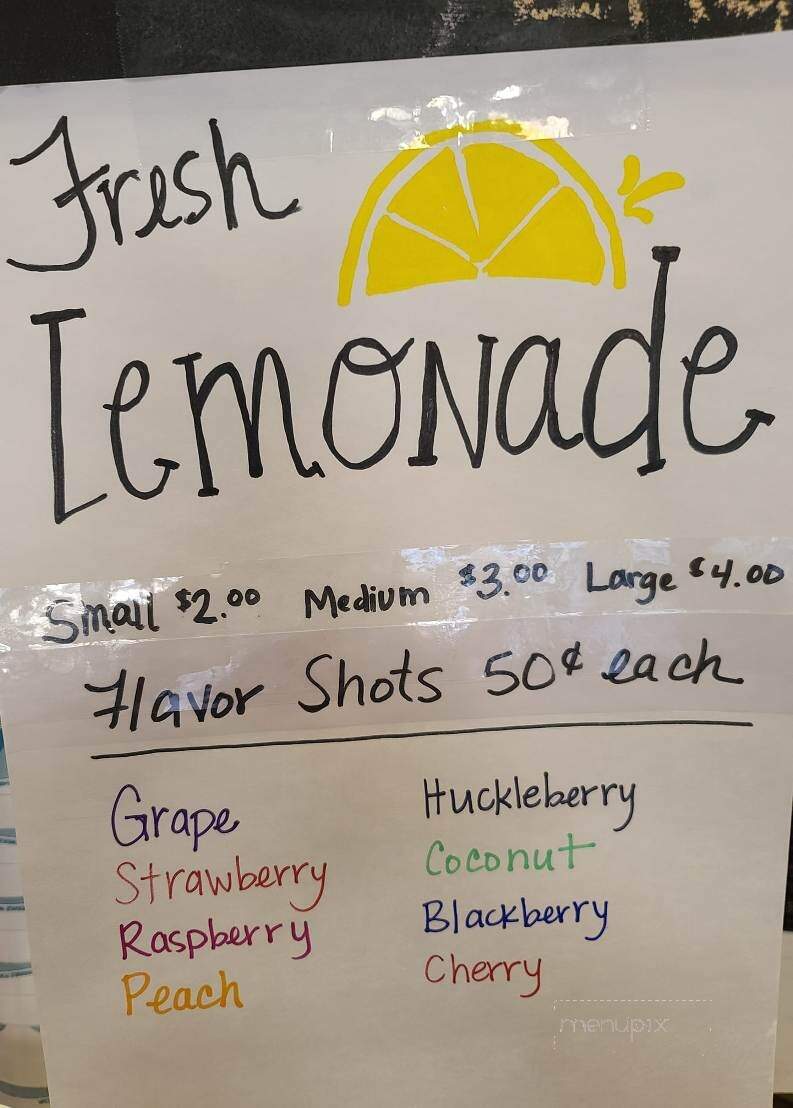 Fresh
Lemonade
Small $2.00 Medium $3.00 Large $4.00
Flavor Shots 50¢ each
Grape
Strawberry
Raspberry
Peach
Huckleberry
Coconut
Blackberry
Cherry
menupix